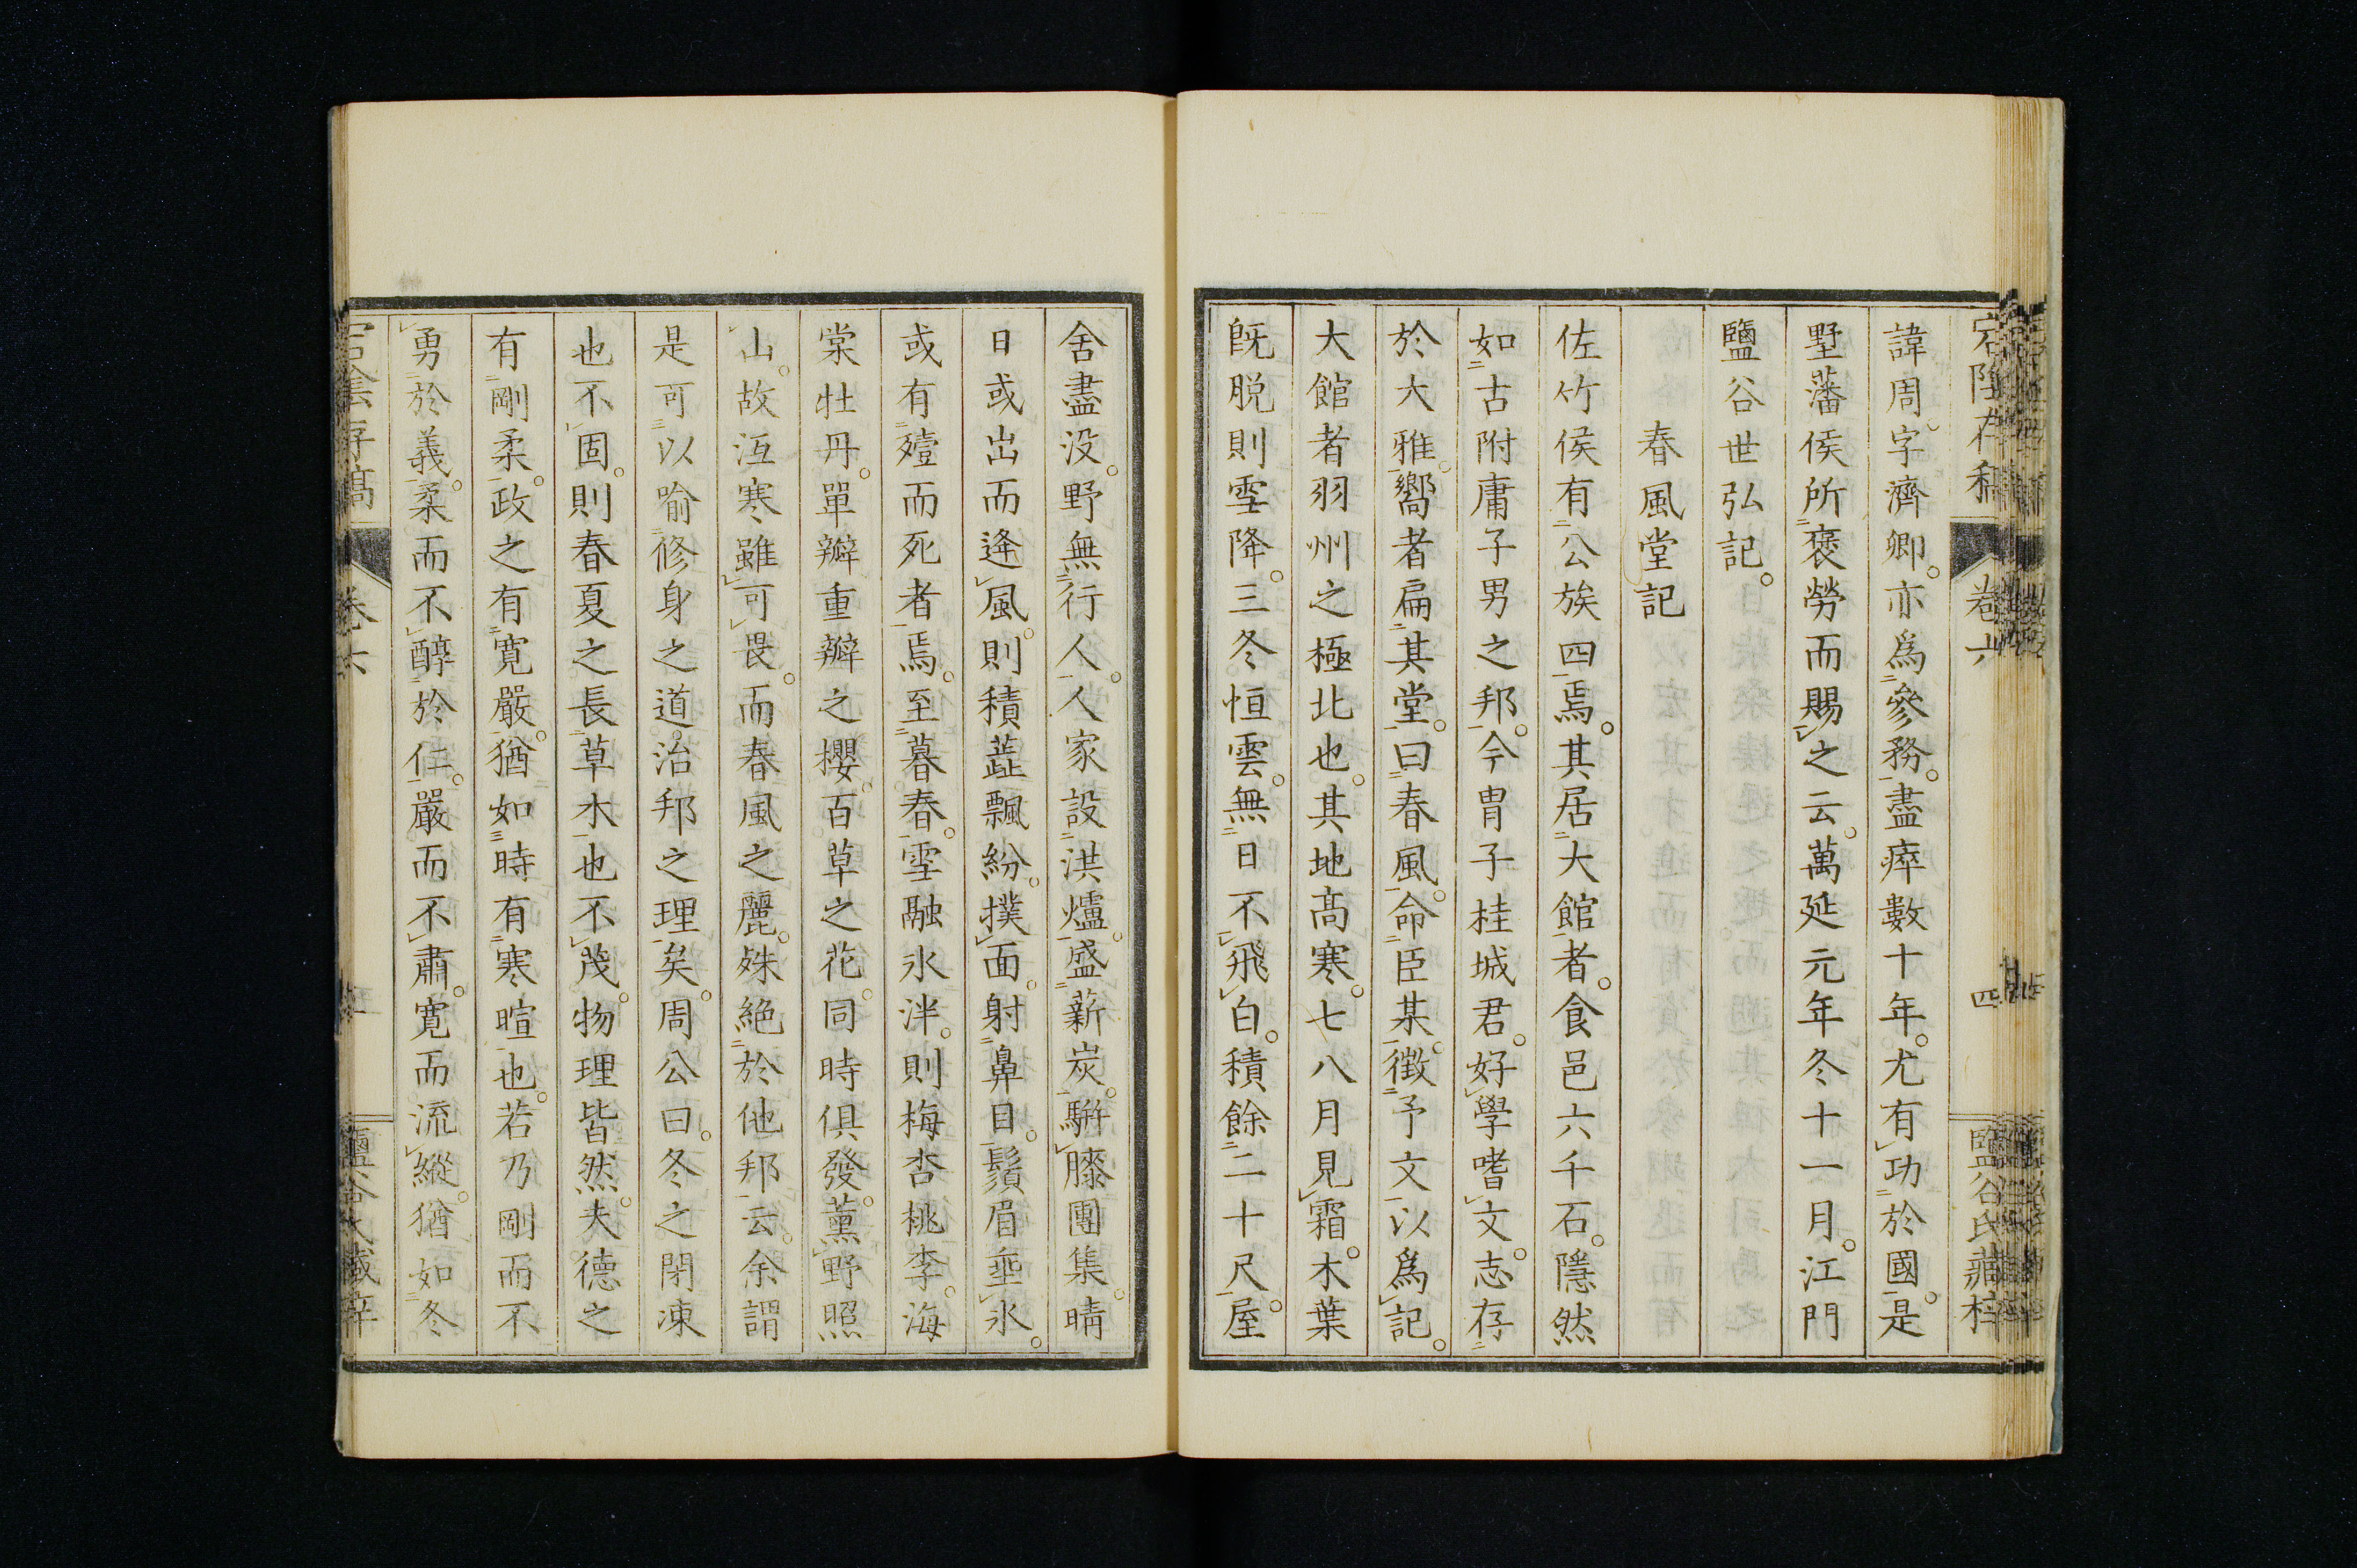 宕陰存稿 卷六 四 鹽谷氏藏梓
諱周。字濟卿。亦爲參務。盡瘁數十年。尤有功於國。是
墅藩侯所褒勞而賜之云。萬延元年冬十一月。江門
鹽谷世弘記。
春風堂記
佐竹侯有公族四焉。其居大館者。食邑六千石。隱然
如古附庸子男之邦。今冑子桂城君。好學嗜文。志存
於大雅。嚮者扁其堂。曰春風。命臣某。徵予文以爲記。
大館者羽州之極北也。其地高寒。七八月見霜。木葉
旣脱則雪降。三冬恒雲。無日不飛白。積餘二十尺。屋
舍盡没。野無行人。人家設洪爐。盛薪炭。騈膝團集。晴
日或出而逢風。則積䪢飄紛。撲面。射鼻目。鬚眉垂氷。
或有殪而死者焉。至暮春。雪融氷泮。則梅杏桃李。海
棠牡丹。單瓣重瓣之櫻。百草之花。同時俱發。薰野照
山。故沍寒雖可畏。而春風之麗。殊絶於他邦云。余謂
是可以喻修身之道。治邦之理矣。周公曰。冬之閉凍
也不固。則春夏之長草木也不茂。物理皆然。夫德之
有剛柔。政之有寛嚴。猶如時有寒暄也。若乃剛而不
勇於義。柔而不醇於仁。嚴而不肅。寛而流縱。猶如冬
宕陰存稿 卷六 鹽谷氏藏梓